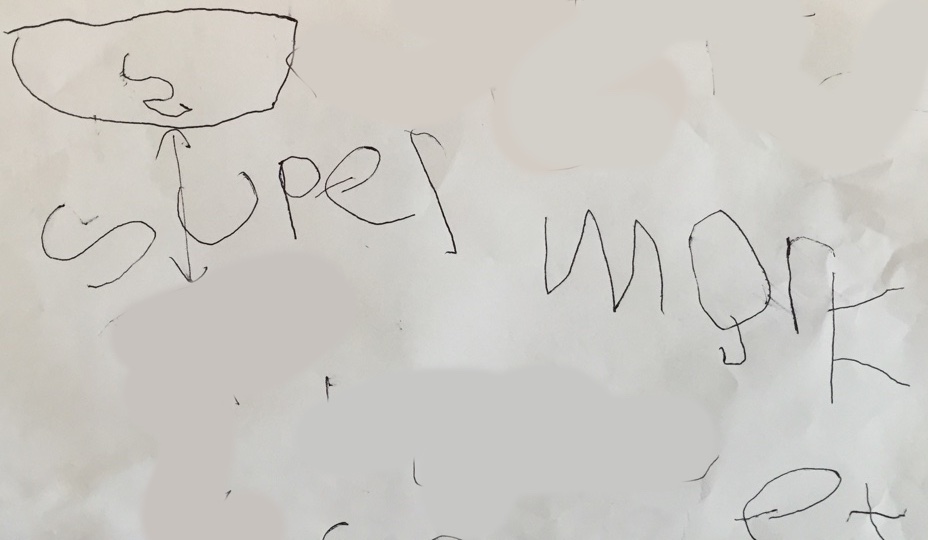 S
super
mark
et